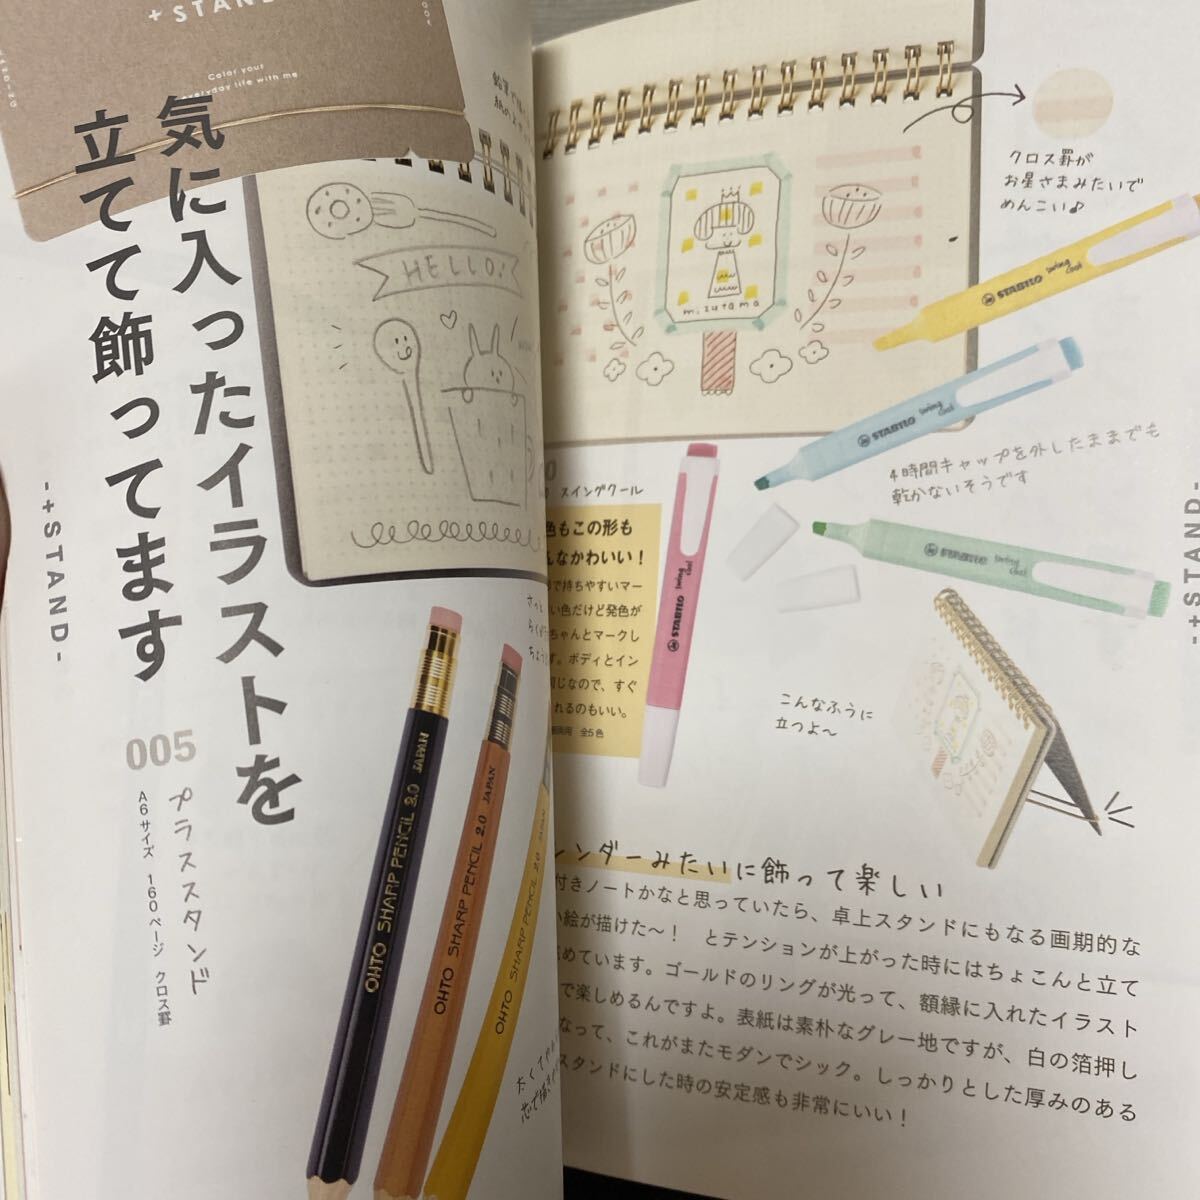 + STAND
Color your
everyday life with me
気に入ったイラストを
立てて飾ってます
-+STAND-
005
プラススタンド
A6サイズ 160ページ クロス罫
HELLO!
mizutama
クロス罫が
お星さまみたいで
めんこい♪
STABILO swing cool
STABILO swing cool
4時間キャップを外したままでも
乾かないそうです
STABILO swing cool
STABILO swing cool
スイングクール
色もこの形も
なかわいい!
で持ちやすいマー
い色だけど発色が
ちゃんとマークし
す。ボディとイン
同じなので、すぐ
れるのもいい。
全5色
こんなふうに
立つよ〜
-+STAND-
OHTO SHARP PENCIL 2.0 JAPAN
OHTO SHARP PENCIL 2.0 JAPAN
OHTO SHARP PENCIL 2.0 JAPAN
ンダーみたいに飾って楽しい
付きノートかなと思っていたら、卓上スタンドにもなる画期的な
い絵が描けた〜! とテンションが上がった時にはちょこんと立て
めています。ゴールドのリングが光って、額縁に入れたイラスト
で楽しめるんですよ。表紙は素朴なグレー地ですが、白の箔押し
なって、これがまたモダンでシック。しっかりとした厚みのある
スタンドにした時の安定感も非常にいい!